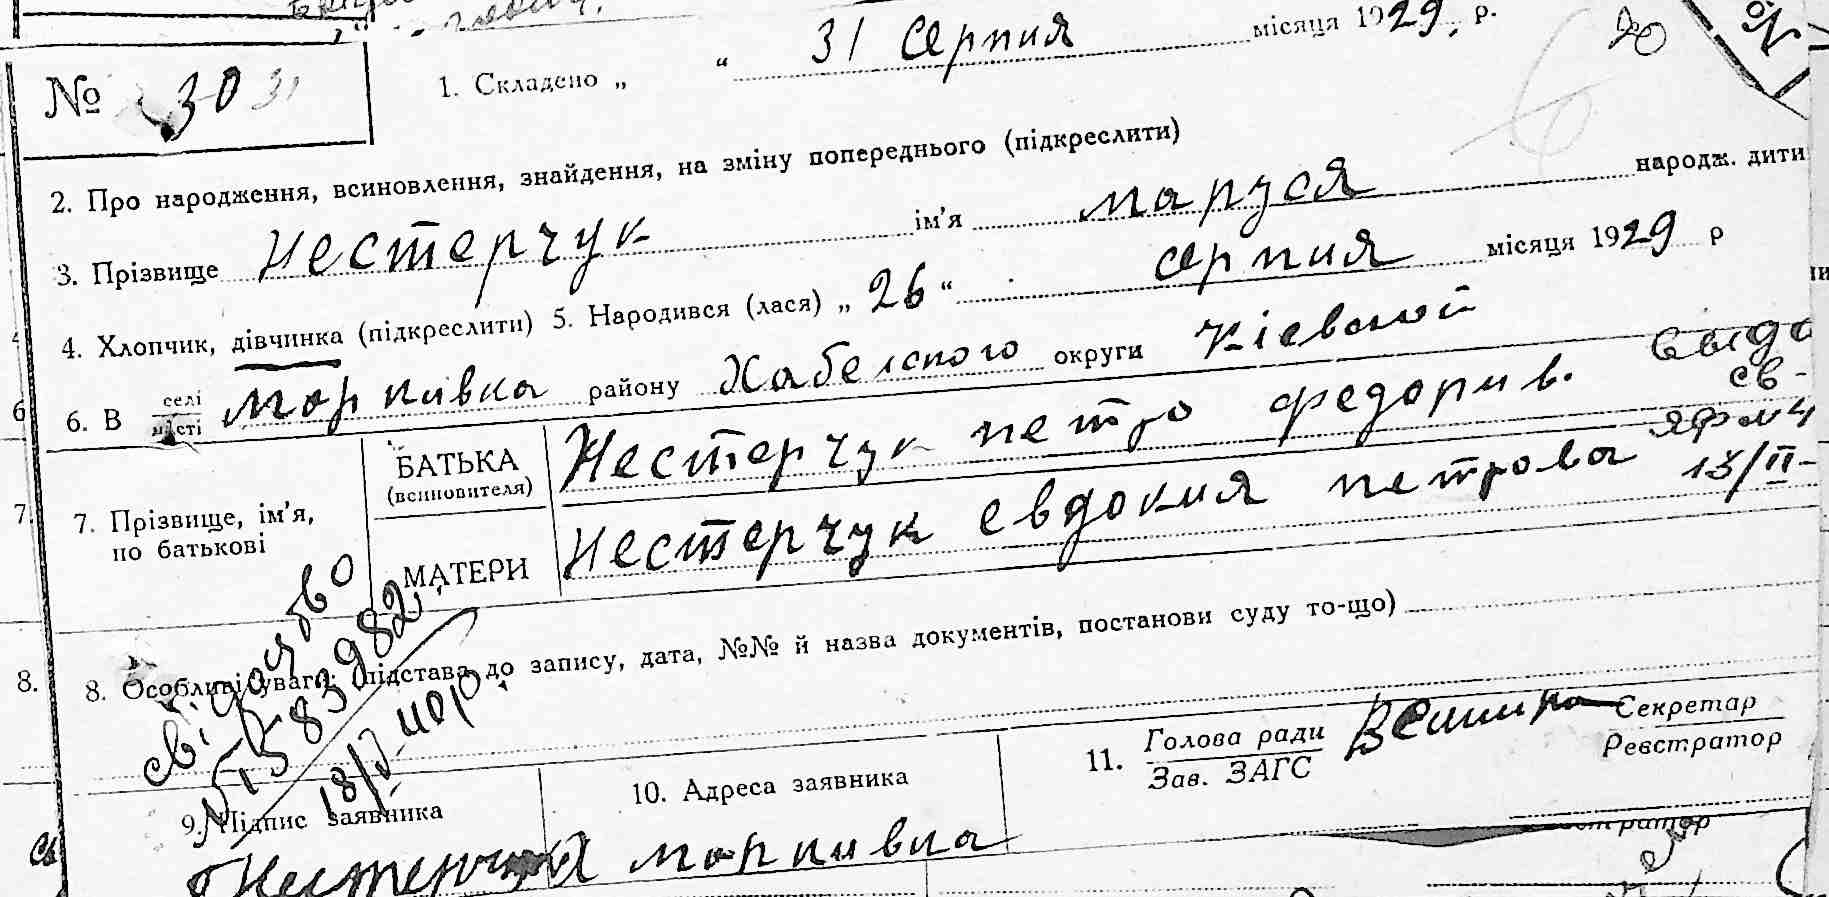 № 30 31
1. Складено „ “ 31 Серпня місяця 1929. р.
20
№
2. Про народження, всиновлення, знайдення, на зміну попереднього (підкреслити)
3. Прізвище Нестерчук ім'я маруся народж. дити
4. Хлопчик, дівчинка (підкреслити) 5. Народився (лася) „ 26 “ серпня місяця 1929 р
6. В селі місті Марківка району Хабенского округи Кіевской
7. Прізвище, ім'я, по батькові
БАТЬКА (всиновителя) Нестерчук петро федорив.
МАТЕРИ Нестерчук евдокия петрова
св-
13/II-
8. Особливі уваги: (підстава до запису, дата, №№ й назва документів, постанови суду то-що)
9. Підпис заявника
10. Адреса заявника
марківка
11. Голова ради
Зав. ЗАГС
Секретар
Реєстратор